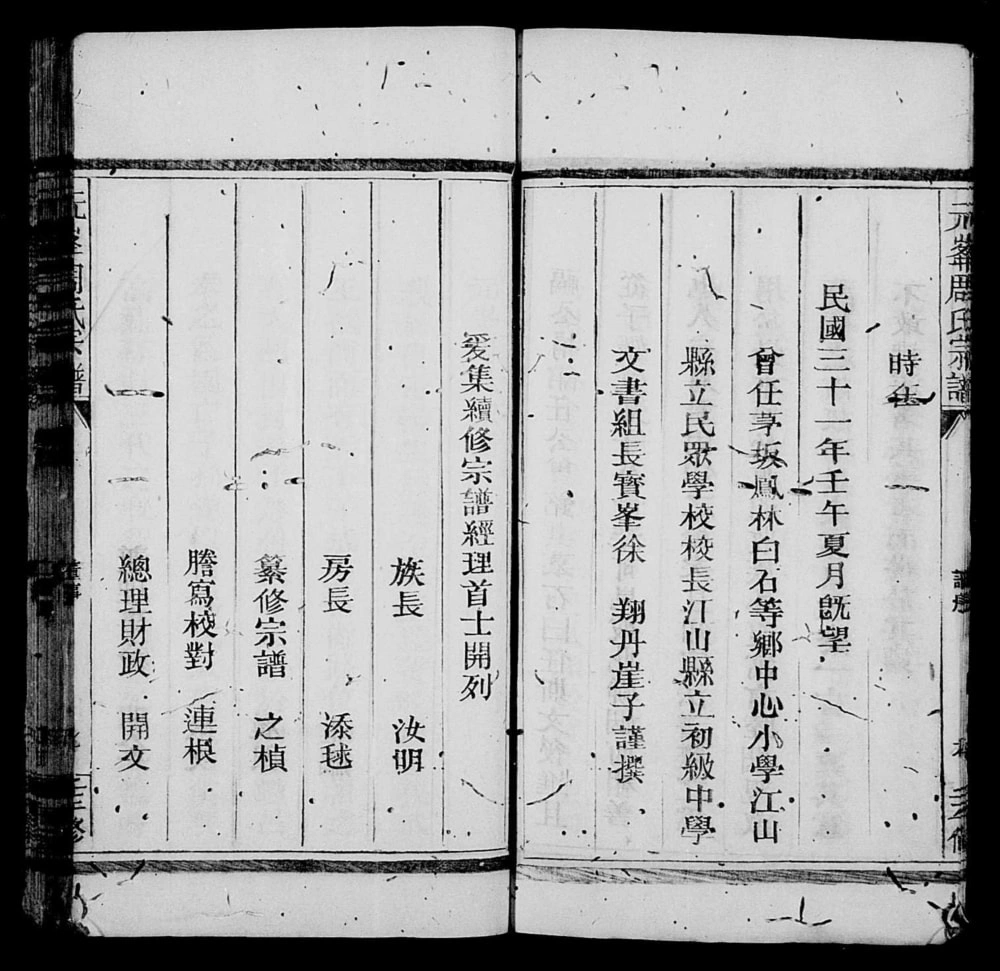 元峯周氏宗譜
時在
民國三十一年壬午夏月既望
曾任茅坂鳳林白石等鄉中心小學江山
縣立民眾學校校長江山縣立初級中學
文書組長寶峯徐 翔丹崖子謹撰
譜序
爰集續修宗譜經理首士開列
族長 汝明
房長 添毬
纂修宗譜 之楨
謄寫校對 連根
總理財政 開文
元峯周氏宗譜
董事